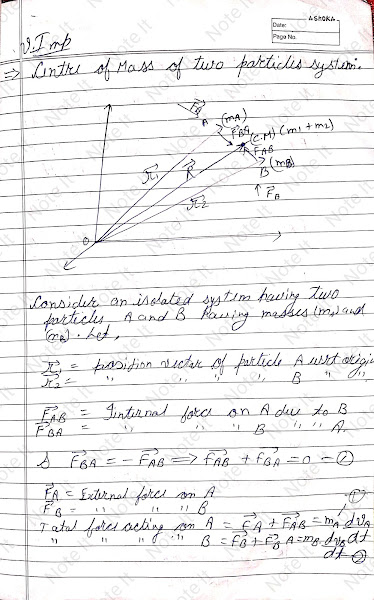 ASHOKA
Date:
Page No.
V.Imp
⇒ Centre of Mass of two particles system:
F⃗A
A (mA)
F⃗BA
(C.M) (m1+m2)
F⃗AB
B (mB)
↑ F⃗B
r⃗1
R⃗
r⃗2
O
Consider an isolated system having two
particles A and B having masses (mA) and
(mB). Let,
r⃗1 = position vector of particle A wrt origin
r⃗2 = " " " " B " "
F⃗AB = Internal force on A due to B
F⃗BA = " " " B " " A.
F⃗BA = -F⃗AB ⟹ F⃗AB + F⃗BA = 0 - ②
F⃗A = External force on A
F⃗B = " " " B
Total force acting on A = F⃗A + F⃗AB = mA dvA
dt
" " " " B = F⃗B + F⃗BA = mB dvB
dt ②